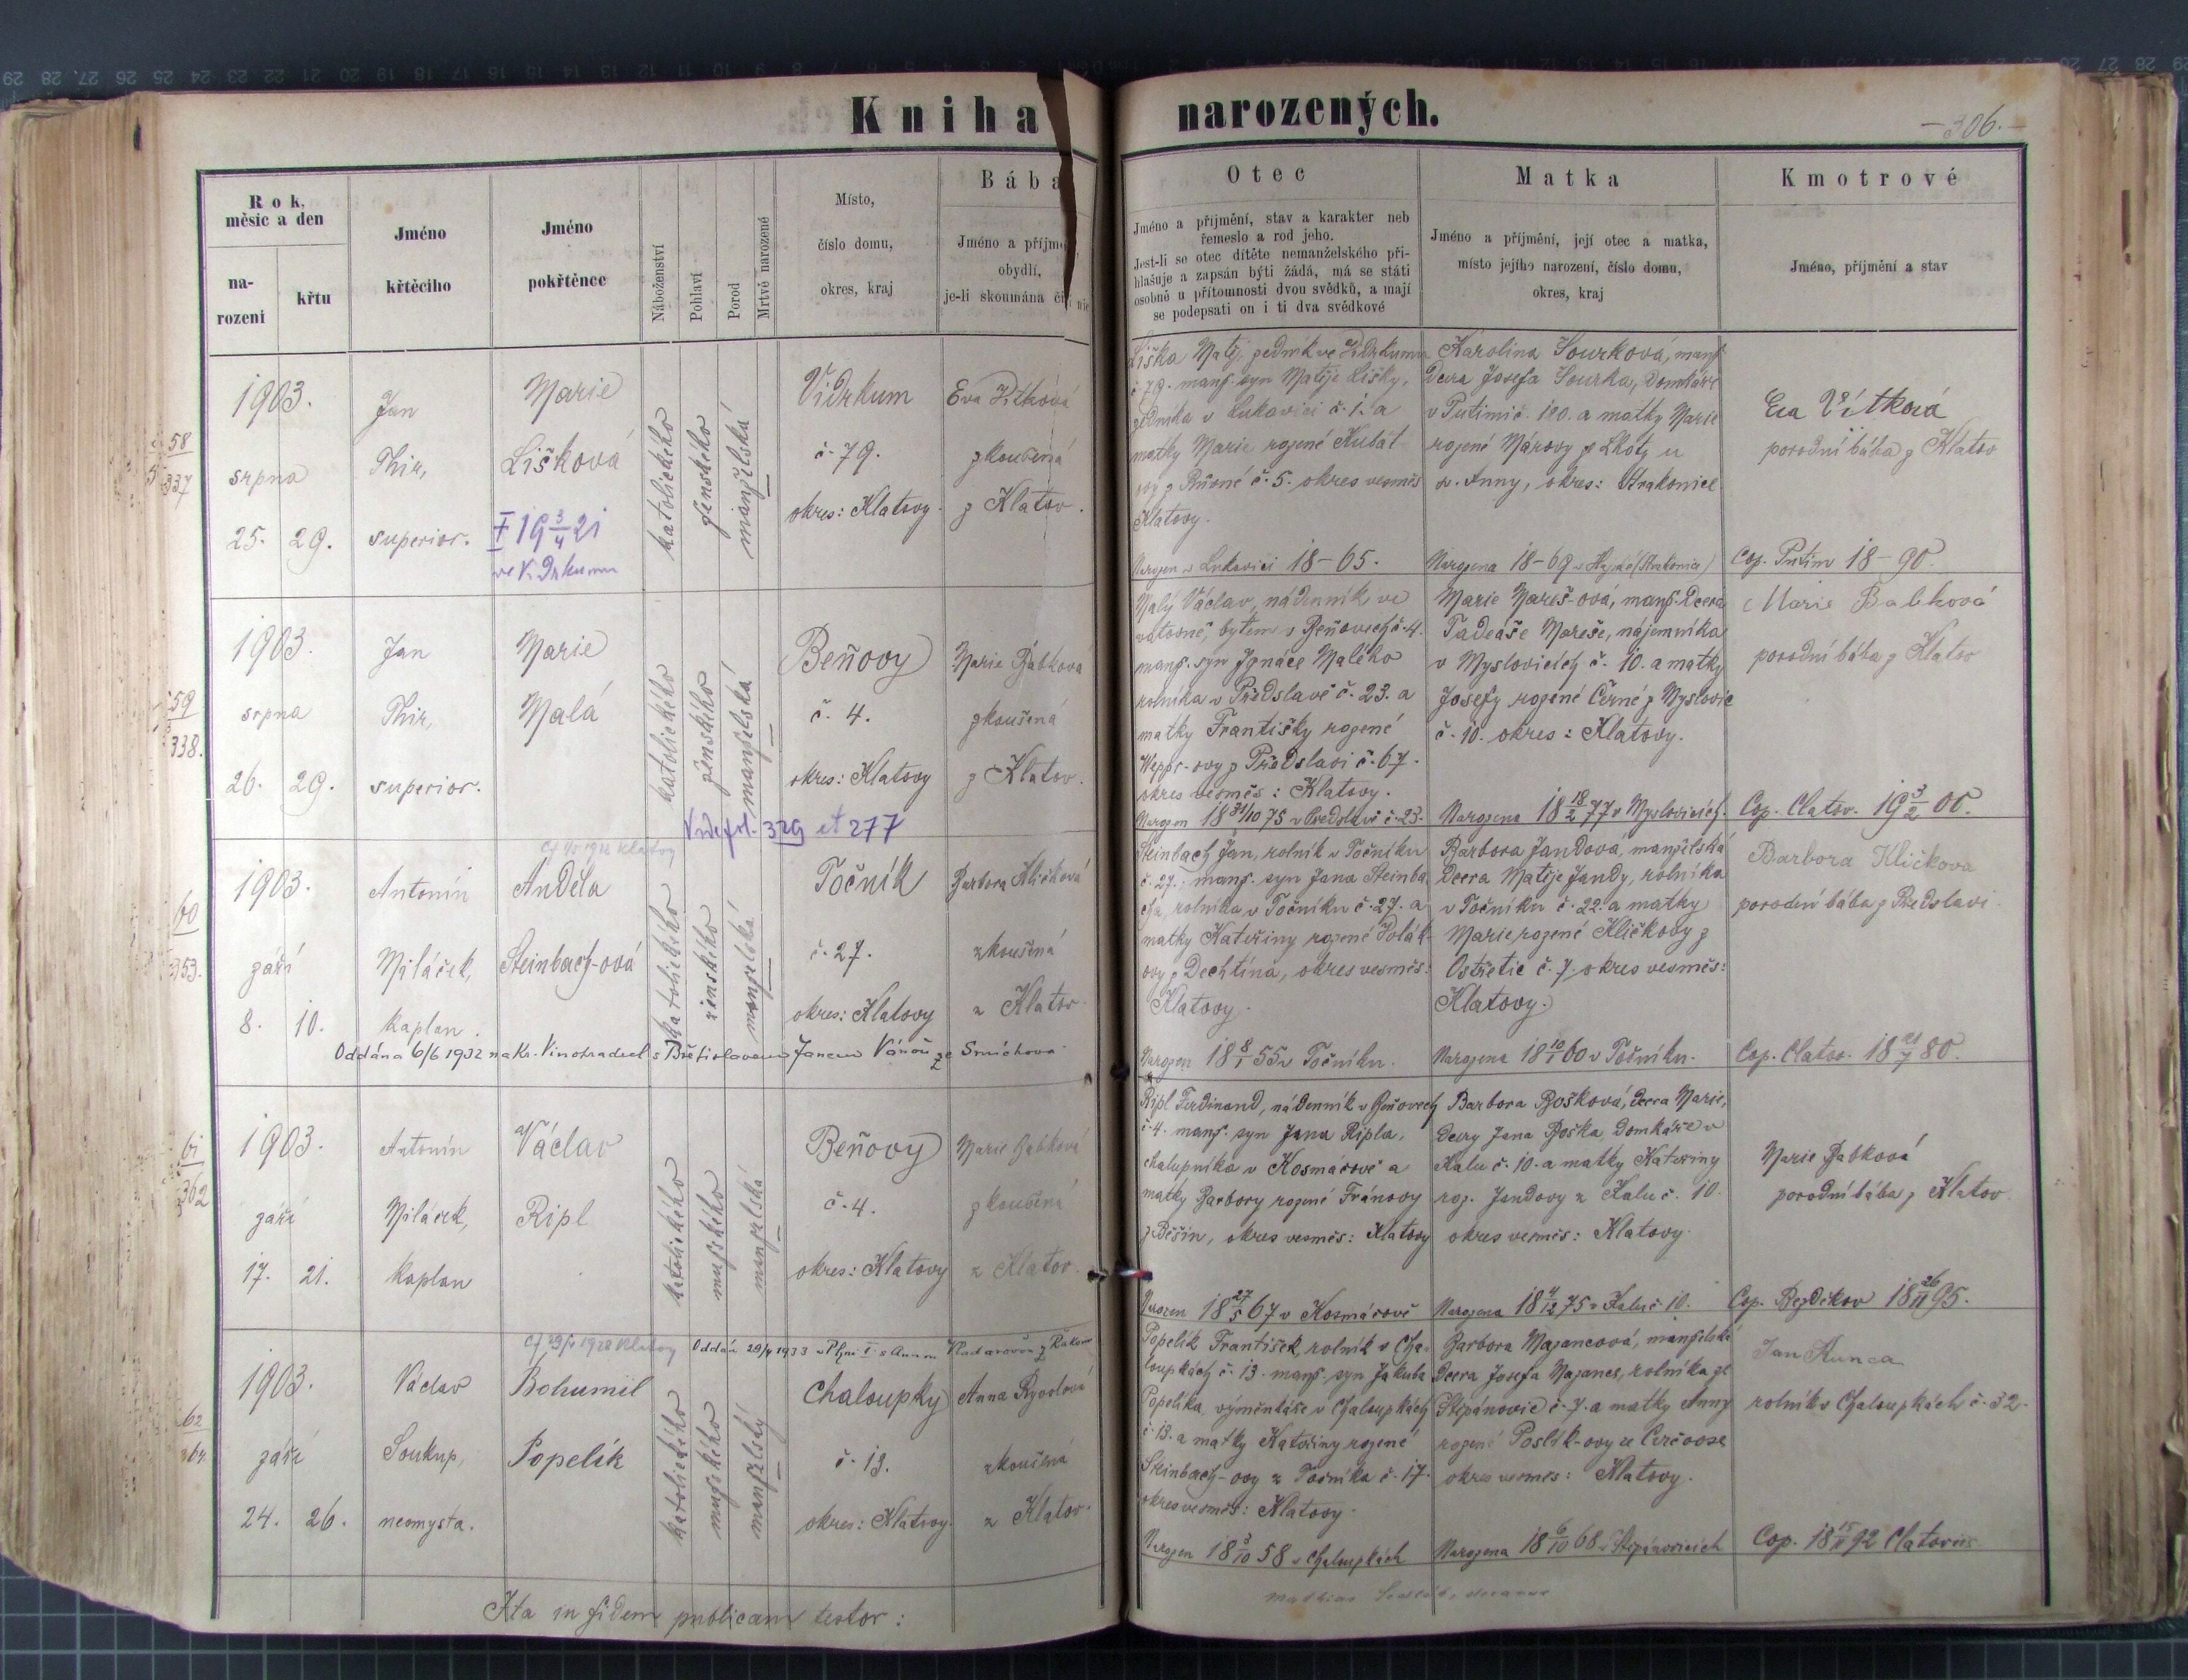 Kniha narozených.
- 306. -
Rok, měsíc a den
na-
rození
křtu
Jméno
křtěcího
Jméno
pokřtěnce
Náboženství
Pohlaví
Porod
Mrtvě narozené
Místo,
číslo domu,
okres, kraj
Bába
obydlí,
Otec
Jméno a příjmení, stav a karakter neb
řemeslo a rod jeho.
Jest-li se otec dítěte nemanželského při-
hlašuje a zapsán býti žádá, má se státi
osobně u přítomnosti dvou svědků, a mají
se podepsati on i ti dva svědkové
Matka
Jméno a příjmení, její otec a matka,
místo jejího narození, číslo domu,
okres, kraj
Kmotrové
Jméno, příjmení a stav
58
337
1903.
srpna
25. 29.
Jan
Thir,
superior.
Marie
Lišková
† 19 3/4 21
ve Vidrkumu
katolického
ženského
manželská
Vidrkum
č. 79.
okres: Klatovy.
Eva Vítková
zkoušená
z Klatov.
Liška Matěj, zedník ve Vidrkumu
č. 79. manž. syn Matěje Lišky,
zedníka v Lukavici č. 1. a
matky Marie rozené Kubát-
č. 5. okres vesměs
Klatovy.
Narozen v Lukavici 18-65.
Karolina Sourková, manž.
dcera Josefa Sourka, domkáře
v Putimi č. 100. a matky Marie
rozené Márovy z Lhoty u
sv. Anny, okres: Strakonice
Narozena 18-69
Eva Vítková
porodní bába z Klatov
Cop. Putim 18-90.
59
338.
1903.
srpna
26. 29.
Jan
Thir,
superior.
Marie
Malá
katolického
ženského
manželská
Vide fol. 329 et 277
Beňovy
č. 4.
okres: Klatovy
Marie Babková
zkoušená
z Klatov.
Malý Václav, nádenník ve
vatovně, bytem v Beňovech č. 4.
manž. syn Ignáce Malého
rolníka v Předslavě č. 23. a
matky Františky rozené
z Předslavi č. 67.
okres vesměs: Klatovy.
Narozen 18 31/10 75 v Předslavě č. 23.
Marie Mareš-ová, manž. dcera
Tadeáše Mareše, nájemníka
v Myslovicích č. 10. a matky
Josefy rozené Černé z Myslovic
č. 10. okres: Klatovy.
Narozena 18 18/2 77 v Myslovicích.
Marie Babková
porodní bába z Klatov
Cop. Clatov. 19 3/2 00.
60
353.
1903.
září
8. 10.
Antonín
Miláček,
kaplan.
Anděla
Steinbach-ová
katolického
ženského
manželská
Točník
č. 27.
okres: Klatovy
Barbora Kličková
zkoušená
z Klatov
Oddána 6/6 1932 na Kr. Vinohradech s Břetislavem Janem Váňou ze Smíchova
Steinbach Jan, rolník v Točníku
č. 27., manž. syn Jana Steinba-
cha, rolníka v Točníku č. 27. a
matky Kateřiny rozené Polák-
ovy z Dechtína, okres vesměs:
Klatovy.
Narozen 18 8/1 55 v Točníku.
Barbora Jandová, manželská
dcera Matěje Jandy, rolníka
v Točníku č. 22. a matky
Marie rozené Kličkovy z
Ostřetic č. 7. okres vesměs:
Klatovy.
Narozena 18 10/1 60 v Točníku.
Barbora Kličkova
porodní bába z Předslavi.
Cop. Clatov. 18 21/7 80.
61
362
1903.
září
17. 21.
Antonín
Miláček,
kaplan
Václav
Ripl
katolického
mužského
manželská
Beňovy
č. 4.
okres: Klatovy
Marie Babková
zkoušená
z Klatov.
Ripl Ferdinand, nádenník v Beňovech
č. 4. manž. syn Jana Ripla,
chalupníka v Kosmáčově a
matky Barbory rozené Fránovy
z Běšin, okres vesměs: Klatovy
Narozen 18 27/5 67 v Kosmáčově
Barbora Bošková, dcera Marie,
dcery Jana Boška, domkáře v
Kalu č. 10. a matky Kateřiny
roz. Jandovy z Kalu č. 10.
okres vesměs: Klatovy.
Narozena 18 4/12 75 v Kalu č. 10.
Marie Babková
porodní bába z Klatov.
Cop. Bezděkov 18 26/11 95.
62
364
Oddán 29/4 1933 v Plzni
1903.
září
24. 26.
Václav
Soukup,
neomysta.
Bohumil
Popelík
katolického
mužského
manželský
Chaloupky
č. 13.
okres: Klatovy.
Anna
zkoušená
z Klatov.
Popelík František, rolník v Cha-
loupkách č. 13. manž. syn Jakuba
Popelíka, výměnkáře v Chaloupkách
č. 13. a matky Kateřiny rozené
Steinbach-ovy z Točníka č. 17.
okres vesměs: Klatovy.
Narozen 18 3/10 58 v Chaloupkách
Barbora Majancová, manželská
dcera Josefa Majance, rolníka ze
Štěpánovic č. 7. a matky Anny
okres vesměs: Klatovy.
Narozena 18 6/10 68 v Štěpánovicích
Jan Kunca
rolník v Chaloupkách č. 32.
Cop. 18 15/11 92 Clatoviis
Ita in fidem publicam testor: